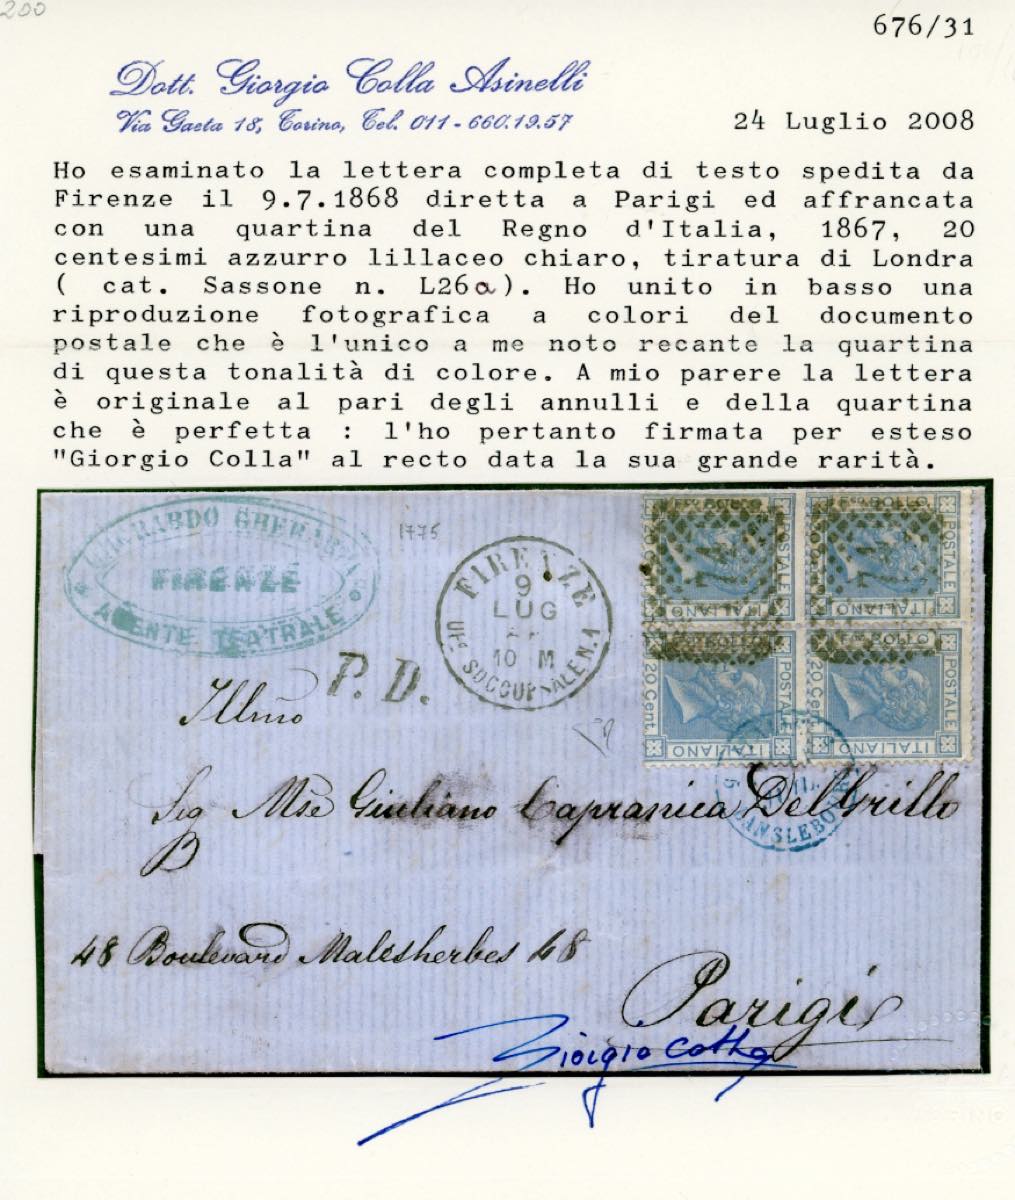 200
676/31
Dott. Giorgio Colla Asinelli
Via Gaeta 18, Torino, Tel. 011-660.19.57
24 Luglio 2008
Ho esaminato la lettera completa di testo spedita da
Firenze il 9.7.1868 diretta a Parigi ed affrancata
con una quartina del Regno d'Italia, 1867, 20
centesimi azzurro lillaceo chiaro, tiratura di Londra
( cat. Sassone n. L26a). Ho unito in basso una
riproduzione fotografica a colori del documento
postale che è l'unico a me noto recante la quartina
di questa tonalità di colore. A mio parere la lettera
è originale al pari degli annulli e della quartina
che è perfetta : l'ho pertanto firmata per esteso
"Giorgio Colla" al recto data la sua grande rarità.
GHERARDO GHERARDI
FIRENZE
AGENTE TEATRALE
1775
FIRENZE
9
LUG
10 M
UFº SUCCURSALE N.1
P.D.
Fco BOLLO
POSTALE
ITALIANO
20 Cent
74
Fco BOLLO
POSTALE
ITALIANO
74
BOLLO
POSTALE
ITALIANO
20 Cent.
BOLLO
POSTALE
ITALIANO
20 Cent.
Illmo
Sig Mse Giuliano Capranica Del Grillo
48 Boulevard Malesherbes 48
Parigi
Giorgio Colla